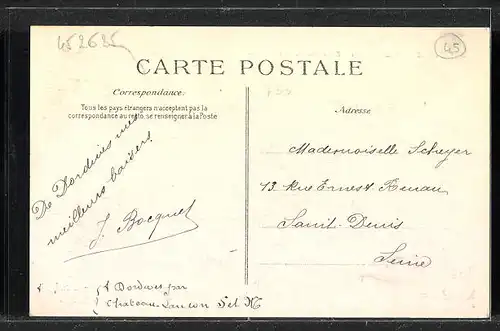 452625
45
CARTE POSTALE
Correspondance:
Tous les pays étrangers n'acceptent pas la
correspondance au recto, se renseigner à la Poste
Adresse
De Dordives mes
meilleurs baisers!
J. Bocquet
à Dordives par
Chateau-Landon S et M
Mademoiselle Scheyer
13. Rue Ernest Renan
Saint-Denis
Seine